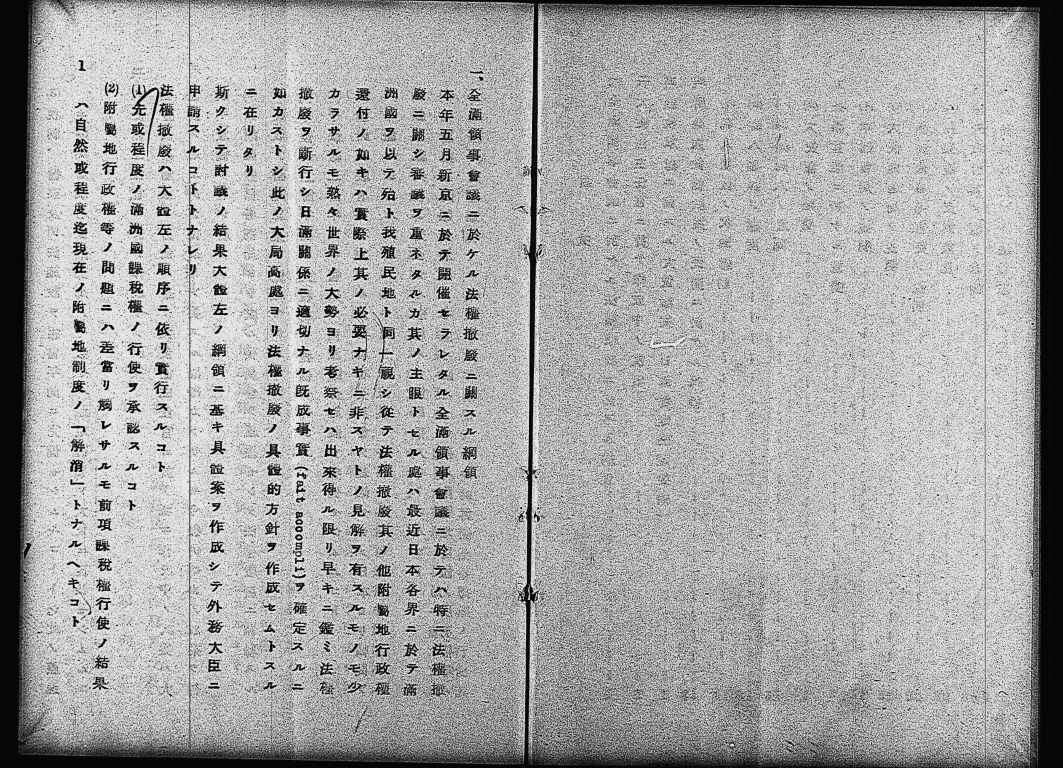 一、全滿領事會議ニ於ケル法權撤廢ニ關スル綱領
本年五月新京ニ於テ開催セラレタル全滿領事會議ニ於テハ特ニ法權撤
廢ニ關シ審議ヲ重ネタルカ其ノ主眼トセル處ハ最近日本各界ニ於テ滿
洲國ヲ以テ殆ト我殖民地ト同一視シ從テ法權撤廢其ノ他附屬地行政權
還付ノ如キハ實際上其ノ必要ナキニ非スヤトノ見解ヲ有スルモノモ少
カラサルモ熟々世界ノ大勢ヨリ考察セハ出來得ル限リ早キニ鑑ミ法權
撤廢ヲ斷行シ日滿關係ニ適切ナル旣成事實(fait accompli)ヲ確定スルニ
如カストシ此ノ大局高處ヨリ法權撤廢ノ具體的方針ヲ作成セムトスル
ニ在リタリ
斯クシテ討議ノ結果大體左ノ綱領ニ基キ具體案ヲ作成シテ外務大臣ニ
申請スルコトトナレリ
法權撤廢ハ大體左ノ順序ニ依リ實行スルコト
(1)先或程度ノ滿洲國課稅權ノ行使ヲ承認スルコト
(2)附屬地行政權等ノ問題ニハ差當リ觸レサルモ前項課稅權行使ノ結果
ハ自然或程度迄現在ノ附屬地制度ノ「解消」トナルヘキコト
1